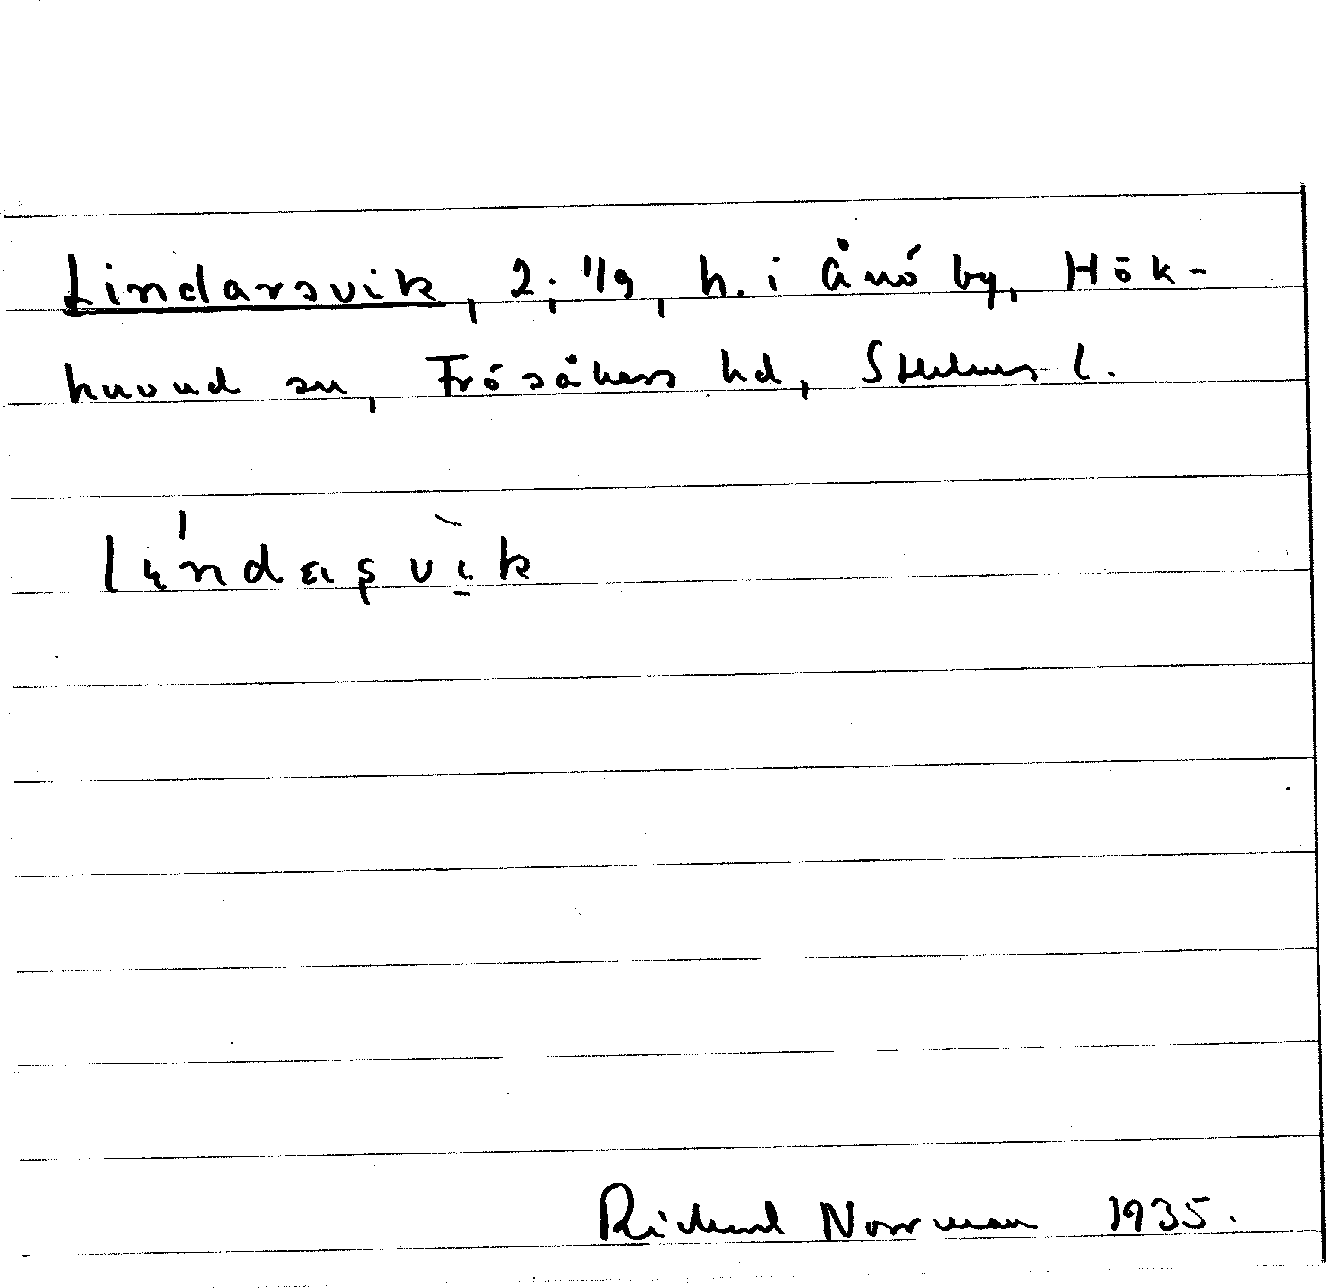 Lindarsvik, 2; 1/9, h. i Ånö by, Hök-
huvud sn, Frösåkers hd, Sthlms l.
lındaşvik
Richard Norrman 1935.